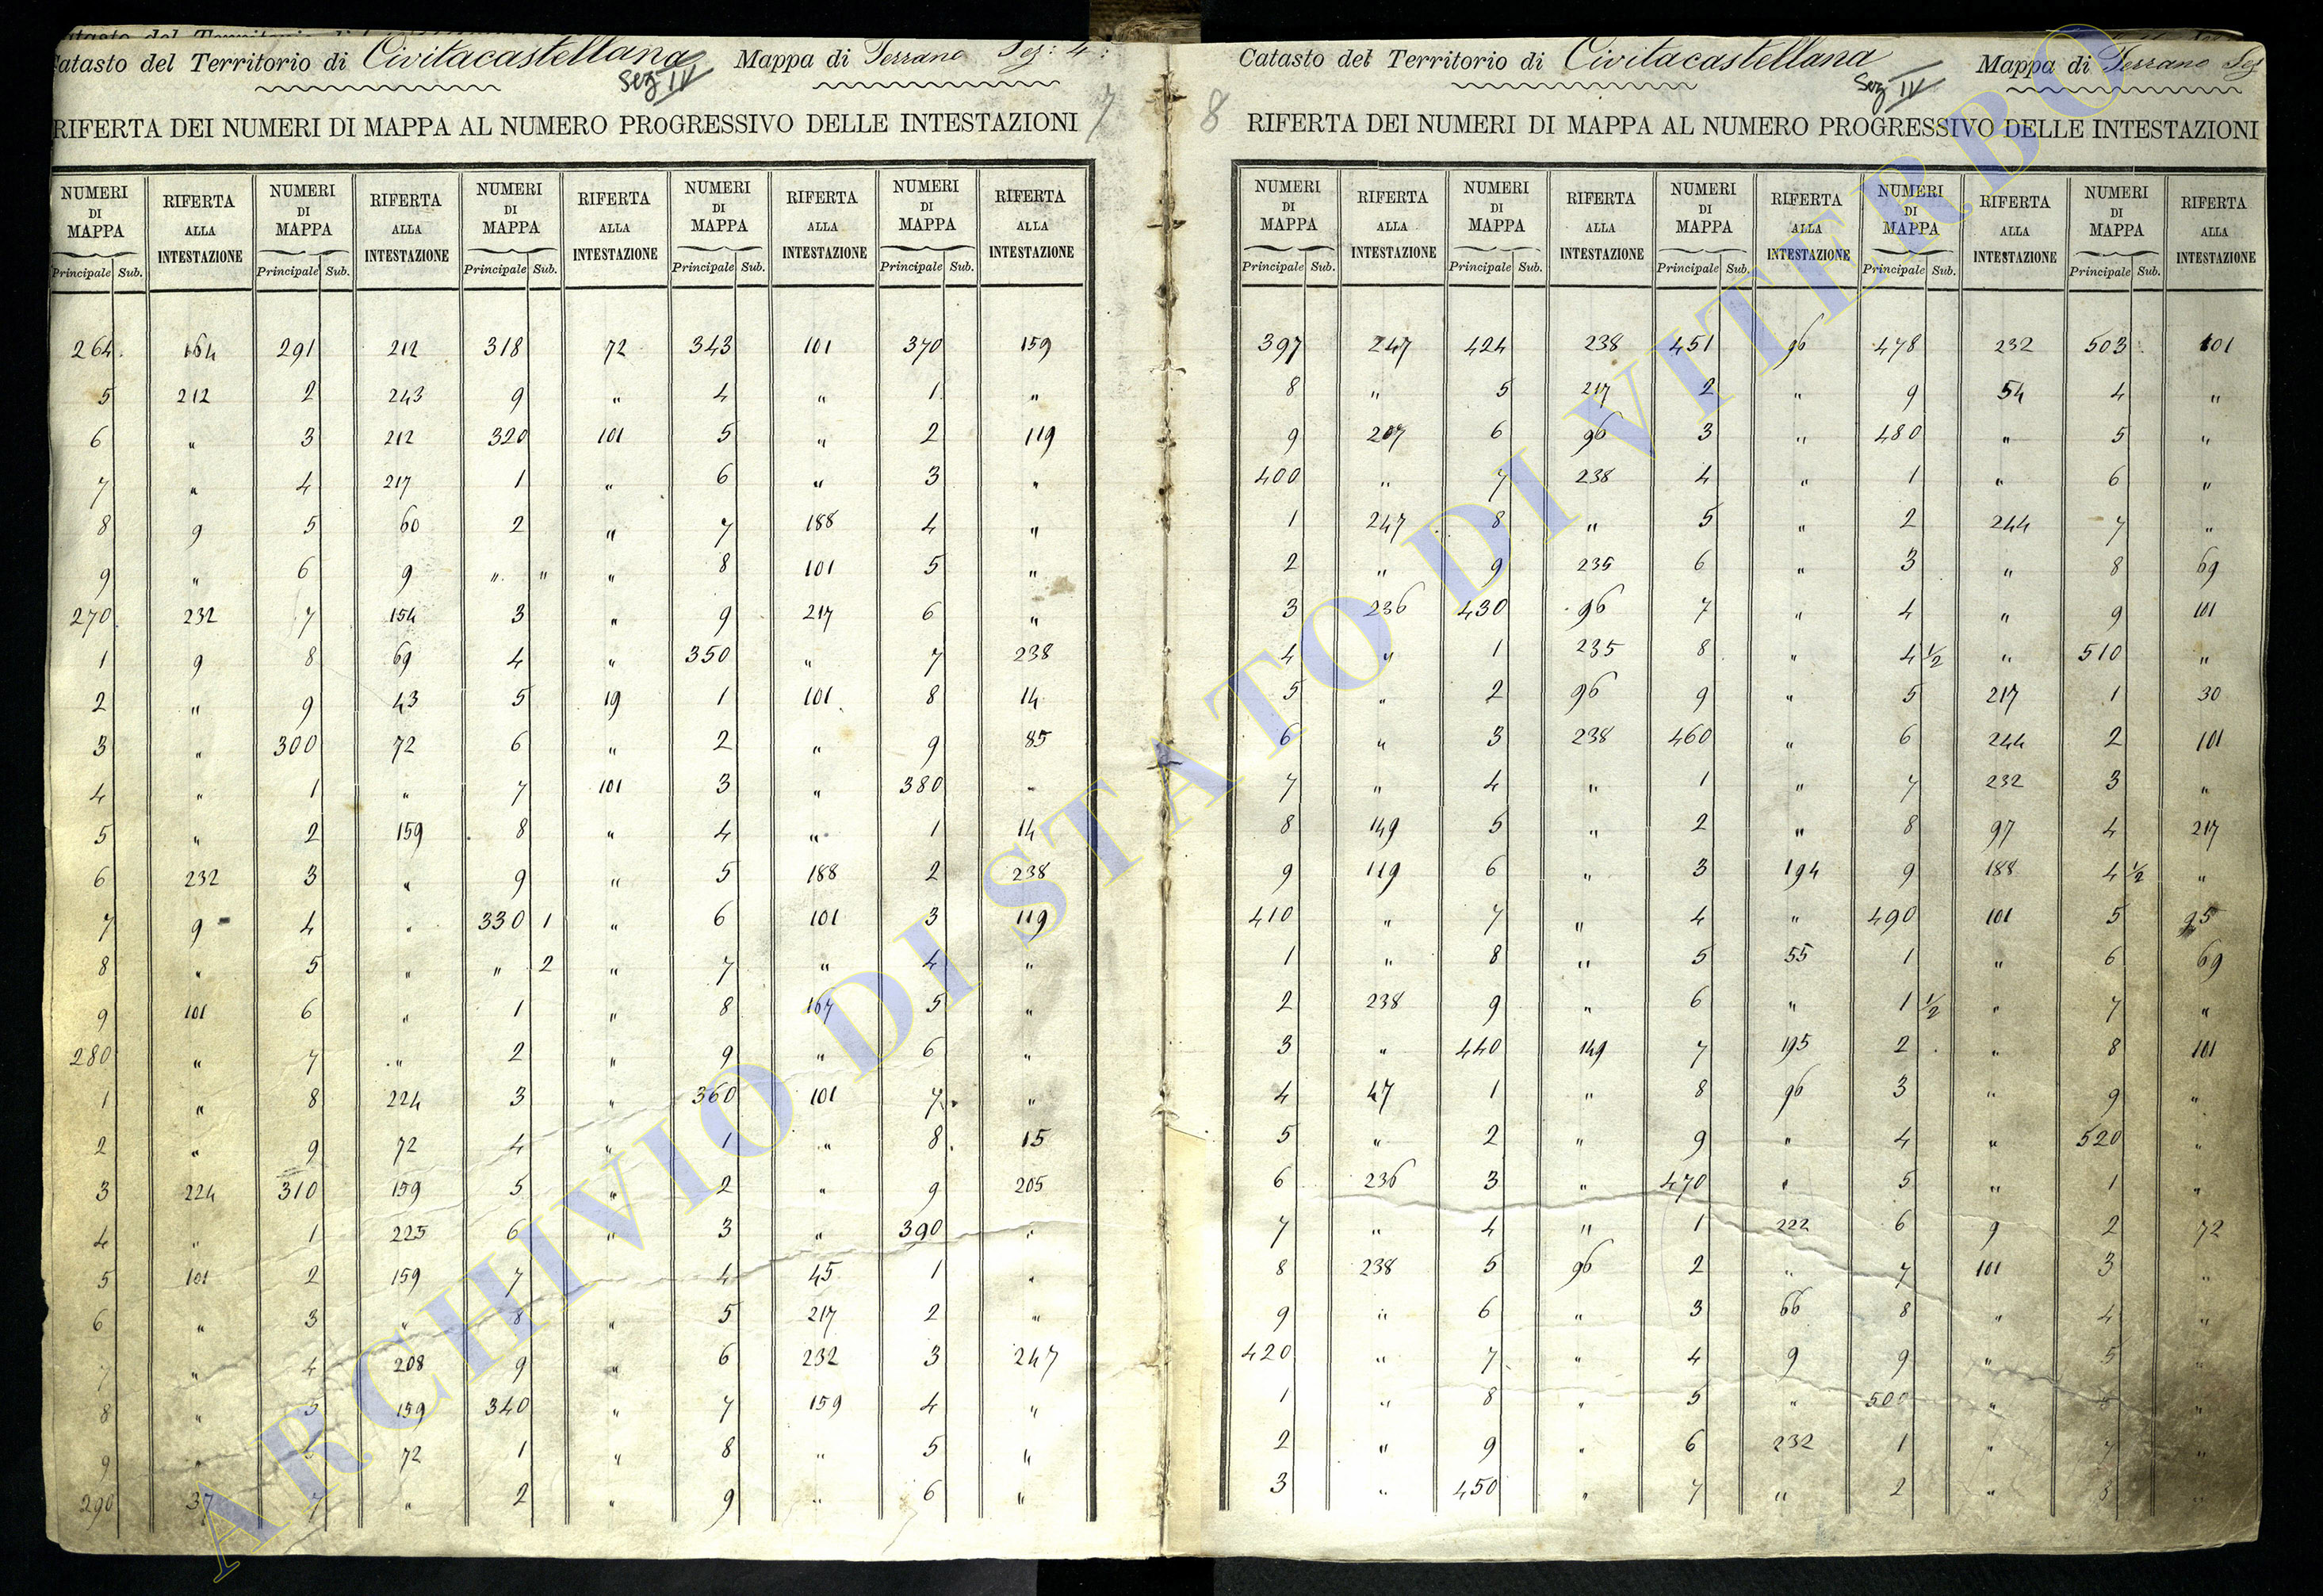 Catasto del Territorio di Civitacastellana Mappa di Terrano Sez: 4
Sez IV
7
RIFERTA DEI NUMERI DI MAPPA AL NUMERO PROGRESSIVO DELLE INTESTAZIONI
NUMERI DI MAPPA RIFERTA ALLA INTESTAZIONE NUMERI DI MAPPA RIFERTA ALLA INTESTAZIONE NUMERI DI MAPPA RIFERTA ALLA INTESTAZIONE NUMERI DI MAPPA RIFERTA ALLA INTESTAZIONE NUMERI DI MAPPA RIFERTA ALLA INTESTAZIONE
Principale Sub. Principale Sub. Principale Sub. Principale Sub. Principale Sub.
264 164 291 212 318 72 343 101 370 159
5 212 2 243 9 " 4 " 1 "
6 " 3 212 320 101 5 " 2 119
7 " 4 217 1 " 6 " 3 "
8 9 5 60 2 " 7 188 4 "
9 " 6 9 " " " 8 101 5 "
270 232 7 154 3 " 9 217 6 "
1 9 8 69 4 " 350 " 7 238
2 " 9 43 5 19 1 101 8 14
3 " 300 72 6 " 2 " 9 85
4 " 1 " 7 101 3 " 380 "
5 " 2 159 8 " 4 " 1 14
6 232 3 " 9 " 5 188 2 238
7 9 4 " 330 1 " 6 101 3 119
8 " 5 " " 2 " 7 " 4 "
9 101 6 " 1 " 8 167 5 "
280 " 7 " 2 " 9 " 6 "
1 " 8 224 3 " 360 101 7 "
2 " 9 72 4 " 1 " 8 15
3 224 310 159 5 " 2 " 9 205
4 " 1 225 6 " 3 " 390 "
5 101 2 159 7 " 4 45 1 "
6 " 3 " 8 " 5 217 2 "
7 " 4 208 9 " 6 232 3 247
8 " 5 159 340 " 7 159 4 "
9 " 6 72 1 " 8 " 5 "
290 37 7 " 2 " 9 " 6 "
Catasto del Territorio di Civitacastellana Mappa di Terrano Sez
Sez IV
8
RIFERTA DEI NUMERI DI MAPPA AL NUMERO PROGRESSIVO DELLE INTESTAZIONI
NUMERI DI MAPPA RIFERTA ALLA INTESTAZIONE NUMERI DI MAPPA RIFERTA ALLA INTESTAZIONE NUMERI DI MAPPA RIFERTA ALLA INTESTAZIONE NUMERI DI MAPPA RIFERTA ALLA INTESTAZIONE NUMERI DI MAPPA RIFERTA ALLA INTESTAZIONE
Principale Sub. Principale Sub. Principale Sub. Principale Sub. Principale Sub.
397 247 424 238 451 96 478 232 503 101
8 " 5 217 2 " 9 54 4 "
9 207 6 96 3 " 480 " 5 "
400 " 7 238 4 " 1 " 6 "
1 247 8 " 5 " 2 244 7 "
2 " 9 235 6 " 3 " 8 69
3 236 430 96 7 " 4 " 9 101
4 " 1 235 8 " 4 1/2 " 510 "
5 " 2 96 9 " 5 217 1 30
6 " 3 238 460 " 6 244 2 101
7 " 4 " 1 " 7 232 3 "
8 149 5 " 2 " 8 97 4 217
9 119 6 " 3 194 9 188 4 1/2 "
410 " 7 " 4 " 490 101 5 95
1 " 8 " 5 55 1 " 6 69
2 238 9 " 6 " 1 1/2 " 7 "
3 " 440 149 7 195 2 " 8 101
4 47 1 " 8 96 3 " 9 "
5 " 2 " 9 " 4 " 520 "
6 236 3 " 470 " 5 " 1 "
7 " 4 " 1 222 6 9 2 72
8 238 5 96 2 " 7 101 3 "
9 " 6 " 3 66 8 " 4 "
420 " 7 " 4 9 9 " 5 "
1 " 8 " 5 " 500 " "
2 " 9 " 6 232 1 " 7 "
3 " 450 " 7 " 2 " 8 "
ARCHIVIO DI STATO DI VITERBO